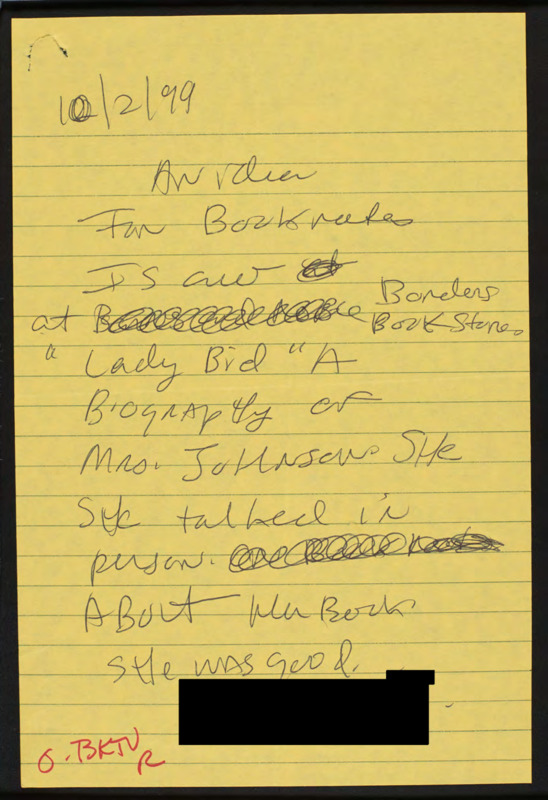 10/2/99
An idea
For Booknotes
I Saw
at Borders
Book Store
"Lady Bird" A
Biography of
Mrs. Johnson. SHe
SHe talked in
person.
ABout Her Book
SHe was good.
G. BKTV
R